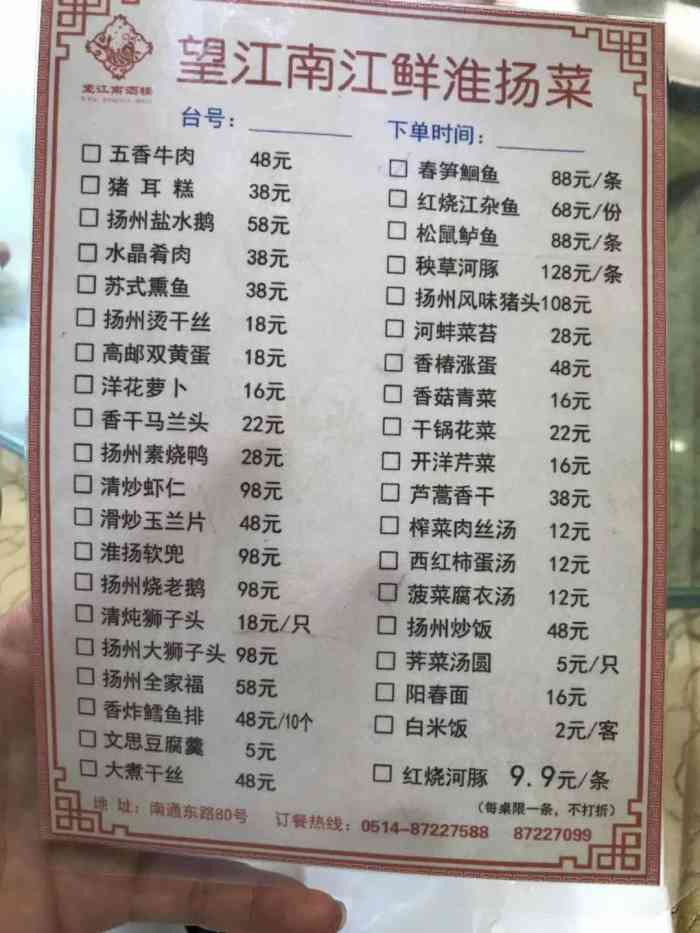 望江南酒楼
望江南江鲜淮扬菜
台号：
下单时间：
五香牛肉 48元
猪耳糕 38元
扬州盐水鹅 58元
水晶肴肉 38元
苏式熏鱼 38元
扬州烫干丝 18元
高邮双黄蛋 18元
洋花萝卜 16元
香干马兰头 22元
扬州素烧鸭 28元
清炒虾仁 98元
滑炒玉兰片 48元
淮扬软兜 98元
扬州烧老鹅 98元
清炖狮子头 18元/只
扬州大狮子头 98元
扬州全家福 58元
香炸鳕鱼排 48元/10个
文思豆腐羹 5元
大煮干丝 48元
春笋鮰鱼 88元/条
红烧江杂鱼 68元/份
松鼠鲈鱼 88元/条
秧草河豚 128元/条
扬州风味猪头 108元
河蚌菜苔 28元
香椿涨蛋 48元
香菇青菜 16元
干锅花菜 22元
开洋芹菜 16元
芦蒿香干 38元
榨菜肉丝汤 12元
西红柿蛋汤 12元
菠菜腐衣汤 12元
扬州炒饭 48元
荠菜汤圆 5元/只
阳春面 16元
白米饭 2元/客
红烧河豚 9.9元/条
（每桌限一条，不打折）
地 址：南通东路80号 订餐热线：0514-87227588 87227099